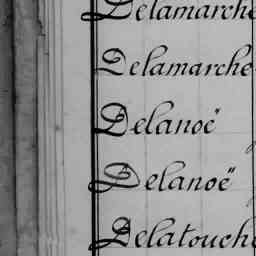 Delamarche
Delamarche
Delanoë
Delanoë
Delatouche